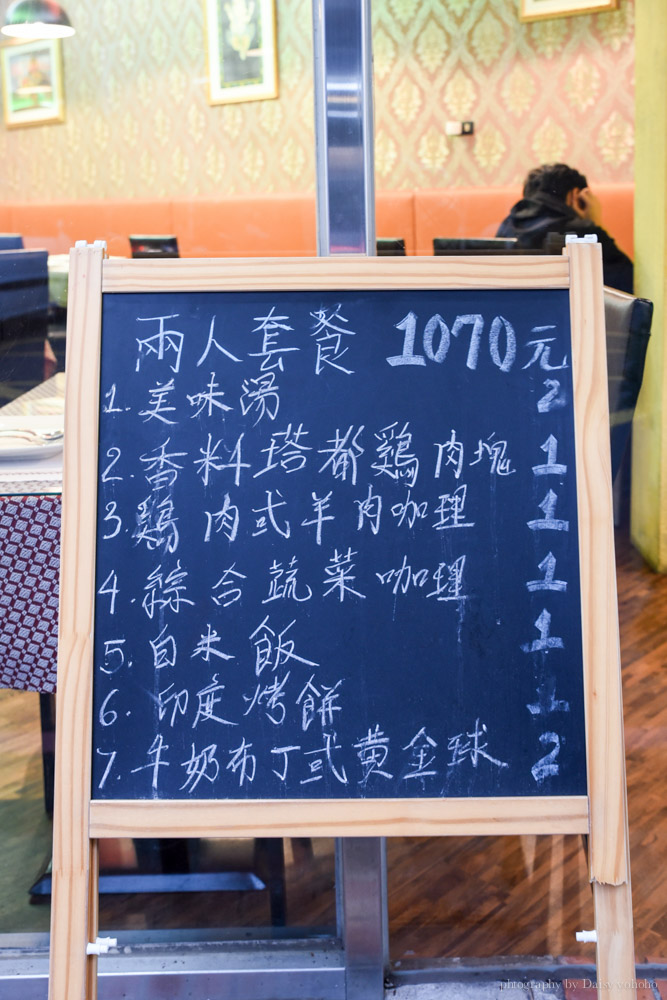 兩人套餐 1070元
1. 美味湯 2
2. 香料塔都鷄肉塊 1
3. 鷄肉或羊肉咖哩 1
4. 綜合蔬菜咖哩 1
5. 白米飯 1
6. 印度烤餅 1
7. 牛奶布丁或黃金球 2
photography by Daisy yohoho